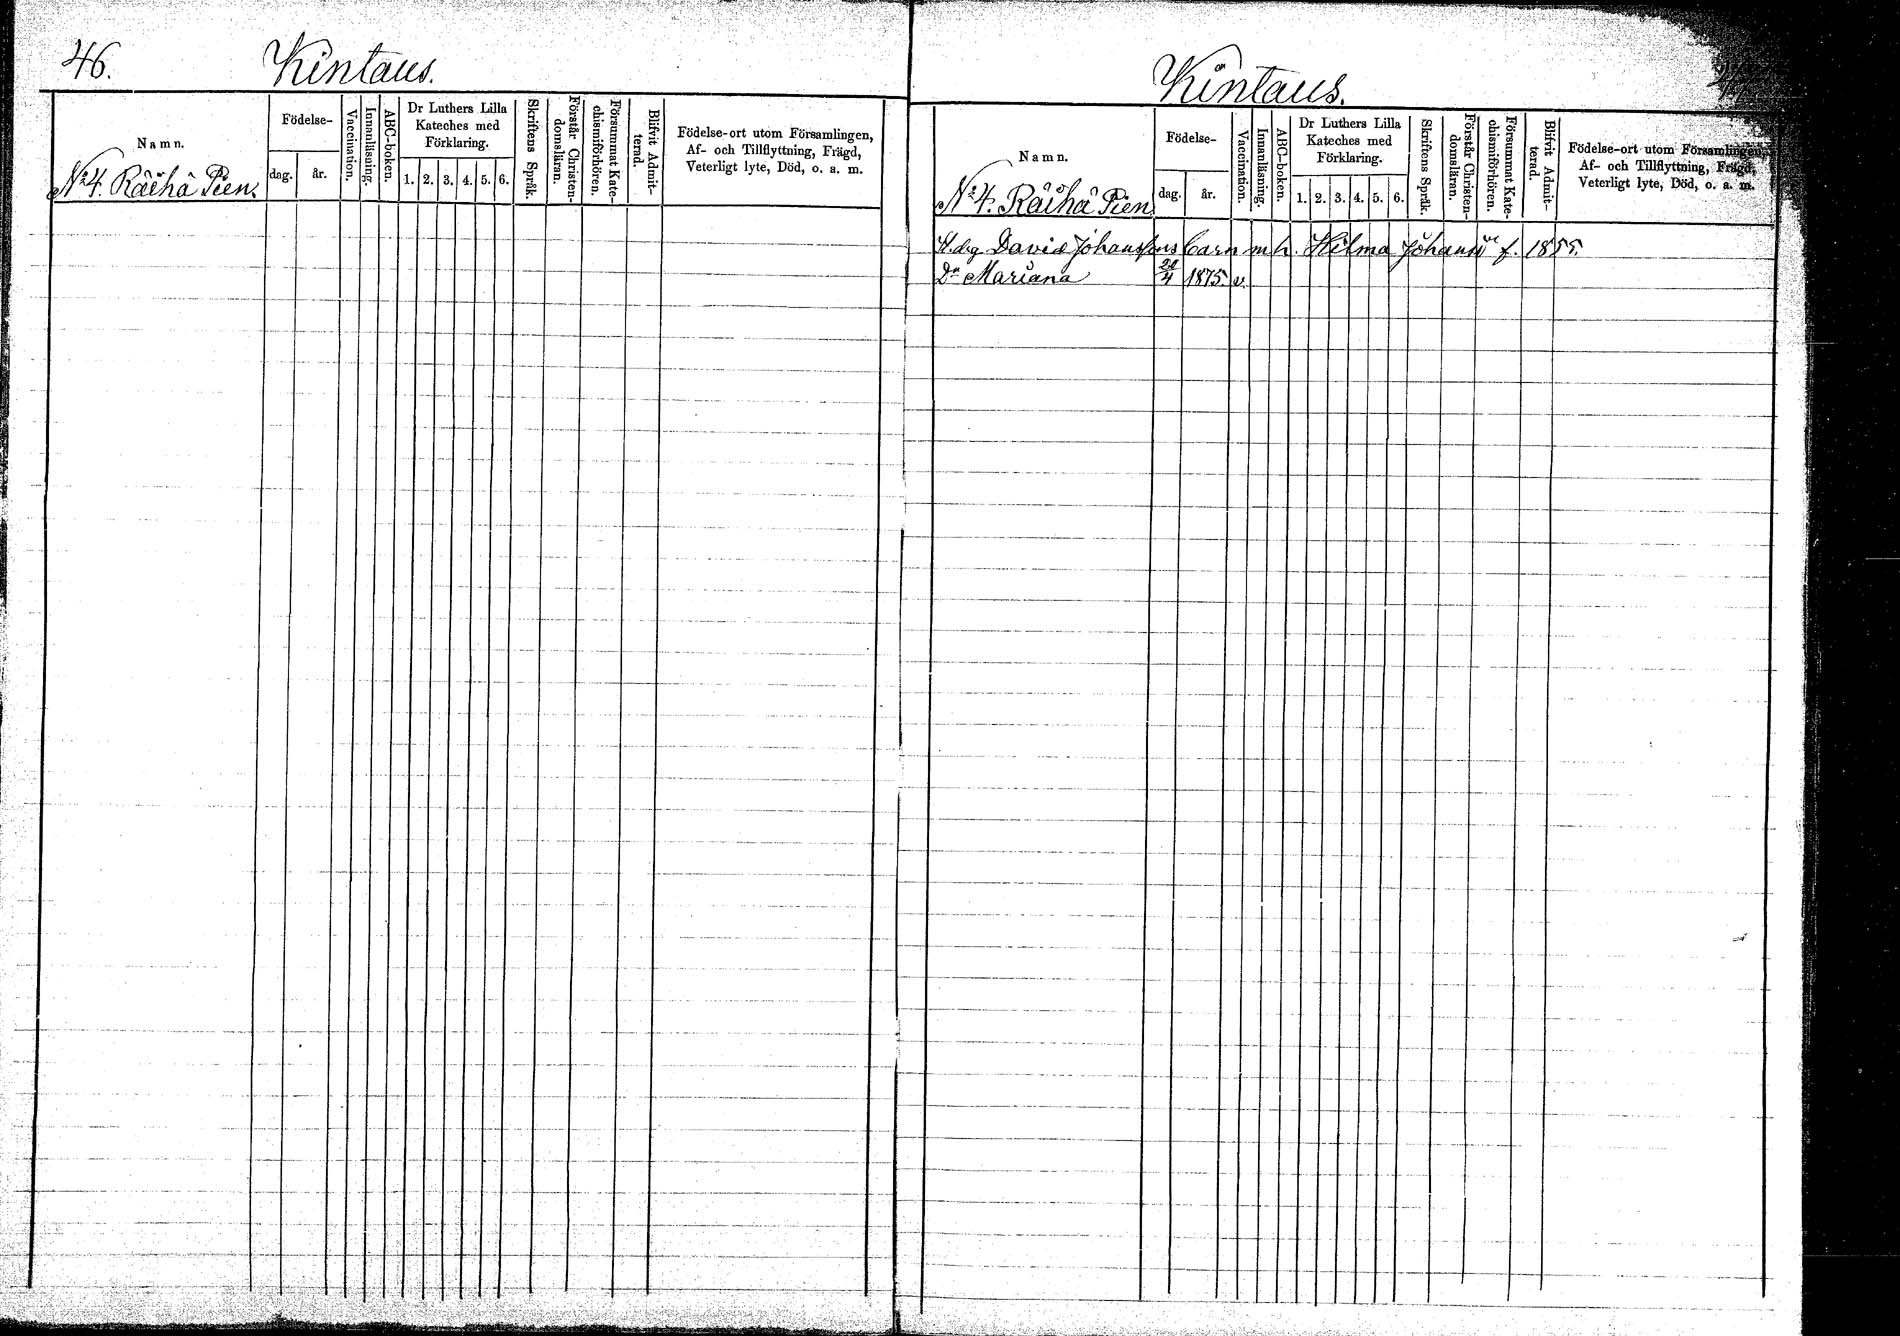 46.
Kintaus.
Namn.
Födelse-
dag.
år.
Vaccination.
Innanläsning.
ABC-boken.
Dr Luthers Lilla
Kateches med
Förklaring.
1. 2. 3. 4. 5. 6.
Skriftens Språk.
Förstår Christen-
domsläran.
Försummat Kate-
chismiförhören.
Blifvit Admit-
terad.
Födelse-ort utom Församlingen,
Af- och Tillflyttning, Frägd,
Veterligt lyte, Död, o. a. m.
No 4. Räihä Pien.
Kintaus.
Namn.
Födelse-
dag.
år.
Vaccination.
Innanläsning.
ABC-boken.
Dr Luthers Lilla
Kateches med
Förklaring.
1. 2. 3. 4. 5. 6.
Skriftens Språk.
Förstår Christen-
domsläran.
Försummat Kate-
chismiförhören.
Blifvit Admit-
terad.
Födelse-ort utom Församlingen,
Af- och Tillflyttning, Frägd,
Veterligt lyte, Död, o. a. m.
No 4. Räihä Pien.
David Johanssons barn m h. Hilma f. 1855.
Dr Mariana 1875. v.